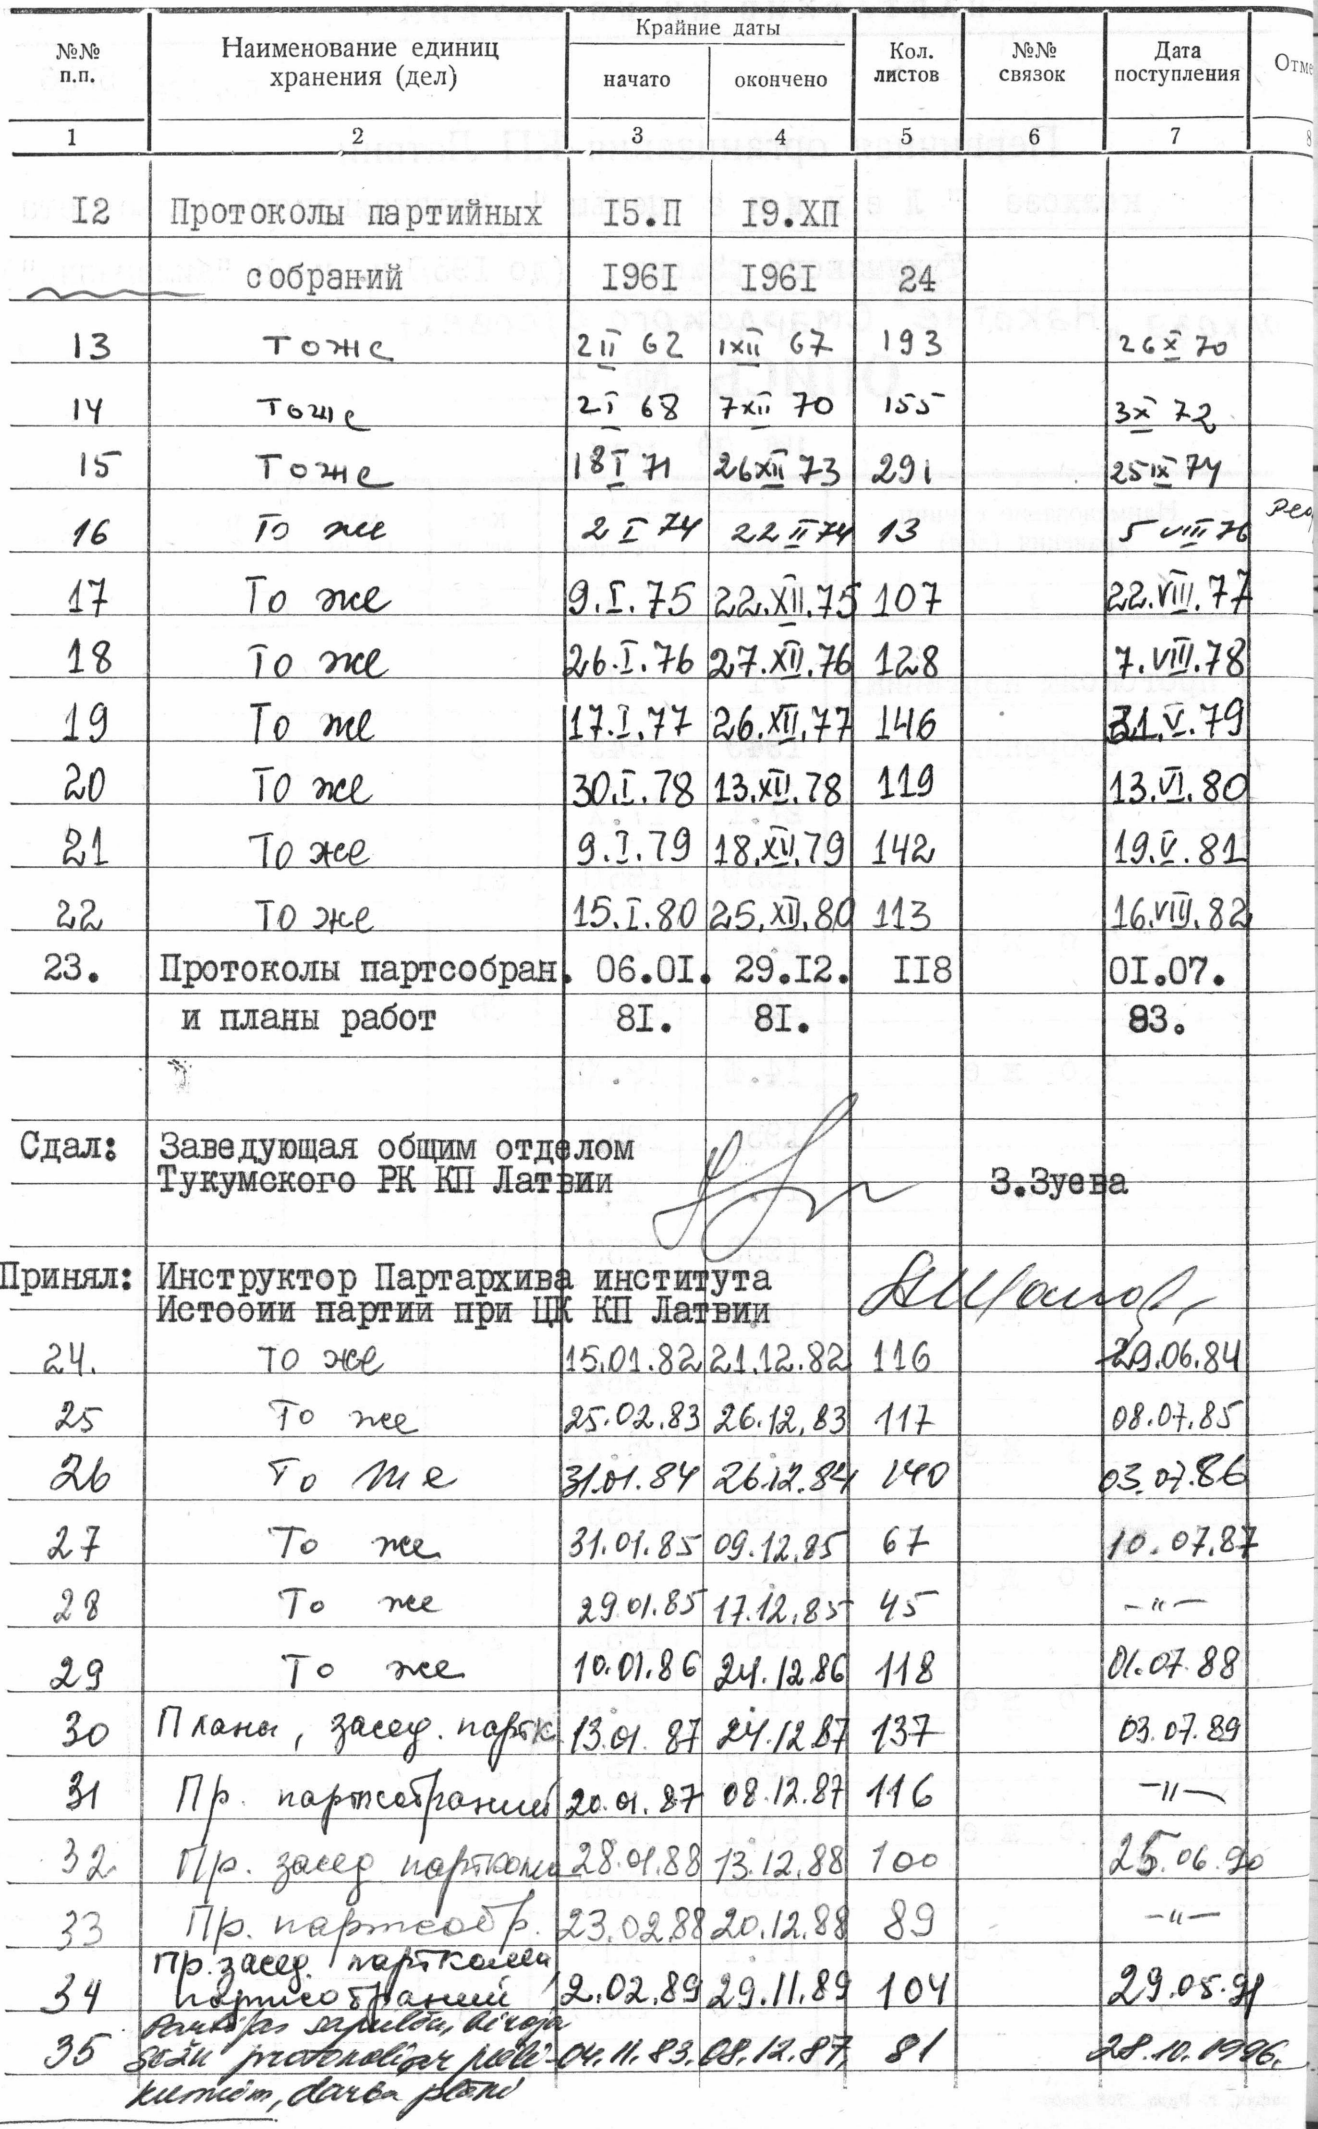 №№ п.п. Наименование единиц хранения (дел) Крайние даты Кол. листов №№ связок Дата поступления Отме
начато окончено
1 2 3 4 5 6 7 8
I2 Протоколы партийных I5.П I9.ХП
собраний I96I I96I 24
13 тоже 2 II 62 1 XII 67 193 26 X 70
14 тоже 2 I 68 7 XII 70 155 3 X 72
15 Тоже 18 I 71 26 XII 73 291 25 IX 74
16 То же 2 I 74 22 II 74 13 5 VIII 76
17 То же 9.I.75 22.XII.75 107 22.VIII.77
18 То же 26.I.76 27.XII.76 128 7.VIII.78
19 То же 17.I.77 26.XII.77 146 31.V.79
20 То же 30.I.78 13.XII.78 119 13.VI.80
21 То же 9.I.79 18.XII.79 142 19.V.81
22 То же 15.I.80 25.XII.80 113 16.VIII.82
23. Протоколы партсобран. 06.0I. 29.I2. II8 0I.07.
и планы работ 8I. 8I. 83.
Сдал: Заведующая общим отделом
Тукумского РК КП Латвии З.Зуева
Принял: Инструктор Партархива института
Истооии партии при ЦК КП Латвии
24. то же 15.01.82 21.12.82 116 29.06.84
25 То же 25.02.83 26.12.83 117 08.07.85
26 То же 31.01.84 26.12.84 140 03.07.86
27 То же 31.01.85 09.12.85 67 10.07.87
28 То же 29.01.85 17.12.85 45 —"—
29 То же 10.01.86 24.12.86 118 01.07.88
30 Планы, засед. партк 13.01.87 24.12.87 137 03.07.89
31 Пр. партсобраний 20.01.87 08.12.87 116 —"—
32 Пр. засед парткома 28.01.88 13.12.88 100 25.06.90
33 Пр. партсобр. 23.02.88 20.12.88 89 —"—
Пр. засед. парткома
34 партсобраний 2.02.89 29.11.89 104 29.05.91
Partijas sapulču, biroja
35 sēžu protokoli ar pieli- 04.11.83. 08.12.87. 81 28.10.1996.
kumiem, darba plāni